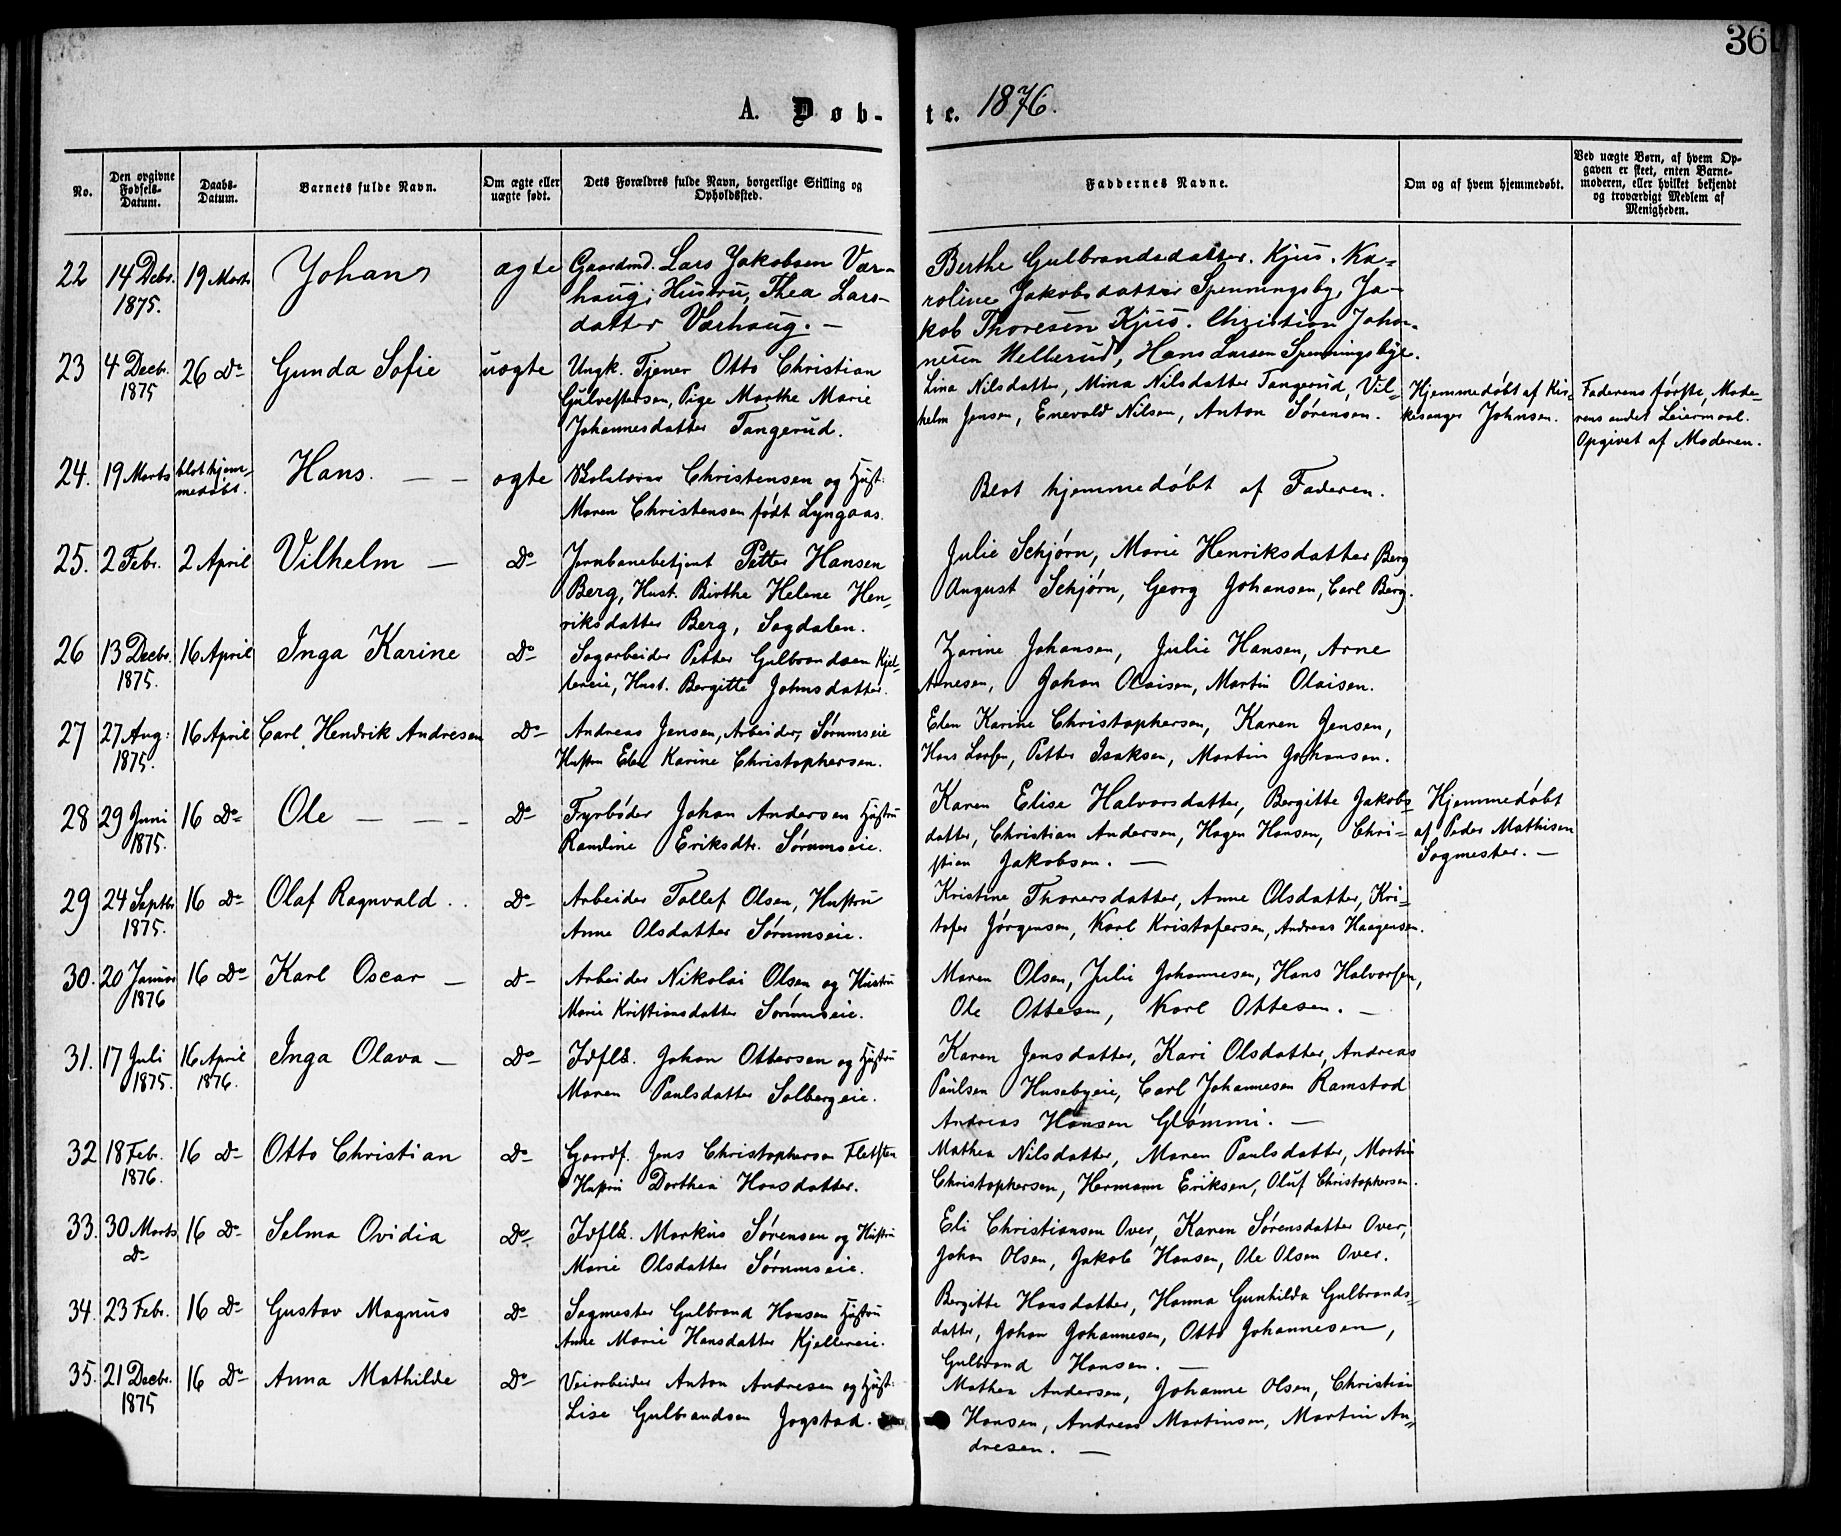 36
A. Døb-
te. 1876.
No.
Den opgivne Fødsels-Datum.
Daabs-Datum.
Barnets fulde Navn.
Om ægte eller uægte født.
Dets Forældres fulde Navn, borgerlige Stilling og Opholdssted.
Faddernes Navne.
Om og af hvem hjemmedøbt.
Ved uægte Børn, af hvem Op-
gaven er skeet, enten Barne-
moderen, eller hvilket bekjendt
og troværdigt Medlem af
Menigheden.
22 14 Decbr. 19 Marts Johan ægte Gaardmd. Lars Jakobsen Var- Berthe Gulbrandsdatter Kjus. Ka-
1875. haug; Hustru, Thea Lars- roline Jakobsdatter Spenningsby, Ja-
datter Varhaug. — kob Thoresen Kjus. Christian Johan-
nesen Hellerud, Hans Larsen Spenningsbye.
23 4 Decbr. 26 Do Gunda Sofie uægte Ungk. Tjener Otto Christian Lina Nilsdatter, Mina Nilsdatter Tangerud, Vil- Hjemmedøbt af Kir- Faderens første, Mode-
1875 Gulvestersen, Pige Marthe Marie helm Jensen, Enevold Nilsen, Anton Sørensen. kesanger Johnsen. rens andet Leiermaal.
Johannesdatter Tangerud. Opgivet af Moderen.
24. 19 Marts blot hjem- Hans. — — ægte Christensen og Hust. Blot hjemmedøbt af Faderen.
medøbt. Maren Christensen født Lyngaas.
25. 2 Febr. 2 April Vilhelm — Do Jernbanebetjent Petter Hansen Julie Schjørn, Marie Henriksdatter Berg
Berg, Hust. Birthe Helene Hen- August Schjørn, Georg Johansen, Carl Berg.
riksdatter Berg, Sagdalen.
26 13 Decbr. 16 April Inga Karine Do Sagarbeider Petter Gulbrandsen Kjel- Johansen, Julie Hansen, Arne
1875. lereie, Hust. Bergitte Johnsdatter. Arnesen, Johan Olaisen, Martin Olaisen.
27 27 Aug: 16 April Carl Hendrik Andresen Do Andreas Jensen, Arbeider, Sørumseie Elen Karine Christophersen, Karen Jensen,
1875. Hustru Elen Karine Christophersen. Hans Larsen, Petter Isaksen, Martin Johansen.
28 29 Juni 16 Do Ole — — — Do Fyrbøder Johan Andersen Hustru Karen Elise Halvorsdatter, Bergitte Jakobs- Hjemmedøbt
1875. Eriksdtr. Sørumseie. datter, Christian Andersen, Hagen Hansen, Chri- af Peder Mathisen
stian Jakobsen. — Sagmester. —
29 24 Septbr 16 Do Olaf Ragnvald. . Do Arbeider Tollef Olsen, Hustru Kristine Thorersdatter, Anne Olsdatter, Kri-
1875. Anne Olsdatter Sørumseie. tofer Jørgensen, Karl Kristofersen, Andreas Haagensen.
30. 20 Januar 16 Do Karl Oscar — Do Arbeider Nikolai Olsen og Hustru Maren Olsen, Julie Johannesen, Hans Halvorsen,
1876 Marie Kristiansdatter Sørumseie. Ole Ottesen, Karl Ottesen. —
31. 17 Juli 16 April Inga Olava — Do Idflk. Johan Ottersen og Hustru Karen Jensdatter, Kari Olsdatter, Andreas
1875. 1876. Maren Paulsdatter Solbergeie. Paulsen Husebyeie, Carl Johannesen Ramstad
Andreas Hansen Glommi. —
32 18 Feb. 16 Do Otto Christian Do Gaardf. Jens Christophersen Hustru Dorthea Hansdatter. Mathea Nilsdatter, Maren Paulsdatter, Martin
1876. Christophersen, Hermann Eriksen, Oluf Christophersen.
33. 30 Marts 16 Do Selma Ovidia Do Idflk. Markus Sørensen og Hustru Eli Christiansen Over, Karen Sørensdatter Over,
Do Marie Olsdatter Sørumseie. Johan Olsen, Jakob Hansen, Ole Olsen Over.
34. 23 Febr. 16 Do Gustav Magnus Do Sagmester Gulbrand Hansen Hustru Bergitte Hansdatter, Hanna Gunhilda Gulbrands-
Anne Marie Hansdatter Kjellereie. datter, Johan Johannesen, Otto Johannesen,
Gulbrand Hansen. —
35. 21 Decbr. 16 Do Anna Mathilde Do Veiarbeider Anton Andresen og Hust. Mathea Andersen, Johanne Olsen, Christian
1875 Lise Gulbrandsen Jogstad. Hansen, Andreas Martinsen, Martin An-
dresen. —